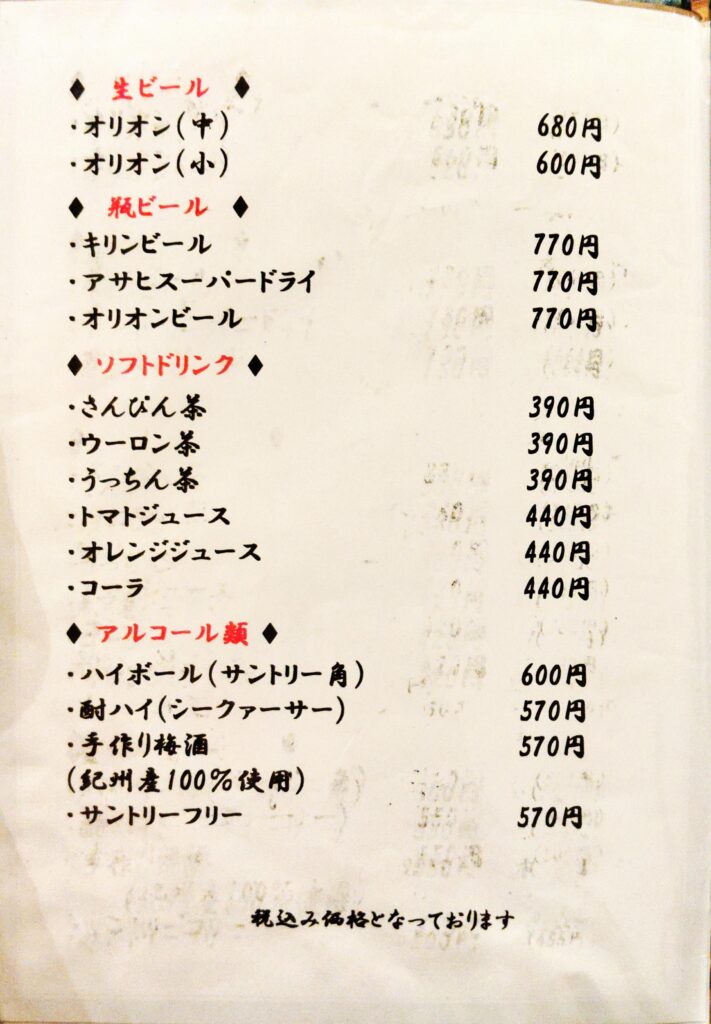 ◆ 生ビール ◆
・オリオン(中) 680円
・オリオン(小) 600円
◆ 瓶ビール ◆
・キリンビール 770円
・アサヒスーパードライ 770円
・オリオンビール 770円
◆ ソフトドリンク ◆
・さんぴん茶 390円
・ウーロン茶 390円
・うっちん茶 390円
・トマトジュース 440円
・オレンジジュース 440円
・コーラ 440円
◆ アルコール類 ◆
・ハイボール(サントリー角) 600円
・酎ハイ(シークァーサー) 570円
・手作り梅酒 570円
(紀州産100%使用)
・サントリーフリー 570円
税込み価格となっております